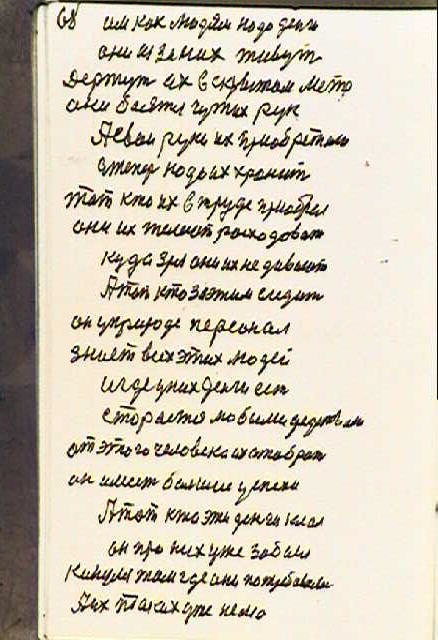 68 им как людям надо денги
они из за них живут
Держут их в скрытом метр
они боятся чужих рук
А свои руки их приобретали
а тепер надо их хранит
тот кто их в труде приобрел
они их желают росходоват
куда зря они их не давают
А тот кто за этим следит
он у природе персонал
знает всех этих людей
и где у них денги ест
старается любыми
от этого человека их отобрат
он имеет болшие успехи
А тот кто эти денги клал
он про них уже забыл
Кинулся там где они потребовали
А их там уже нема